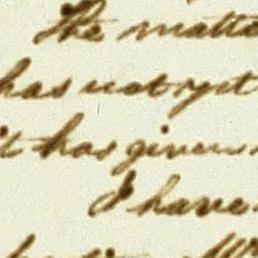 The matte
has not yet
it has given
I have